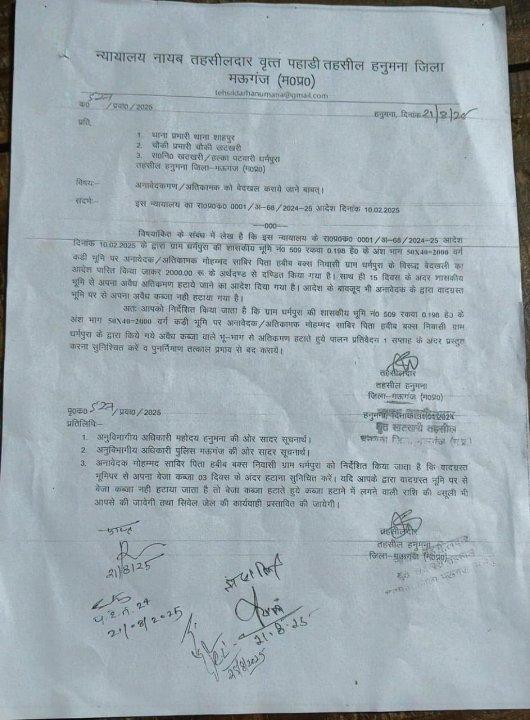 न्यायालय नायब तहसीलदार वृत्त पहाडी तहसील हनुमना जिला
मऊगंज (म0प्र0)
tehsildarhanumana@gmail.com
क0 527 /प्रवा0/2025
हनुमना, दिनांक 21/8/25
प्रति,
1. थाना प्रभारी थाना शाहपुर
2. चौकी प्रभारी चौकी खटखरी
3. रा0नि0 खटखरी/हल्का पटवारी धर्मपुरा
तहसील हनुमना जिला-मऊगंज (म0प्र0)
विषयः- अनावेदकगण/अतिक्रामक को बेदखल कराये जाने बाबत्।
संदर्भः- इस न्यायालय का रा0प्र0क0 0001/अ-68/2024-25 आदेश दिनांक 10.02.2025
---000---
विषयांकित के संबंध में लेख है कि इस न्यायालय के रा0प्र0क0 0001/अ-68/2024-25 आदेश
दिनांक 10.02.2025 के द्वारा ग्राम धर्मपुरा की शासकीय भूमि नं0 509 रकवा 0.198 हे0 के अंश भाग 50X40=2000 वर्ग
कडी भूमि पर अनावेदक/अतिक्रामक मोहम्मद साबिर पिता हबीब बक्स निवासी ग्राम धर्मपुरा के विरूद्ध बेदखली का
आदेश पारित किया जाकर 2000.00 रू के अर्थदण्ड से दण्डित किया गया है। साथ ही 15 दिवस के अंदर शासकीय
भूमि से अपना अवैध अतिक्रमण हटाये जाने का आदेश दिया गया है। आदेश के बावजूद भी अनावेदक के द्वारा वादग्रस्त
भूमि पर से अपना अवैध कब्जा नही हटाया गया है।
अतः आपको निर्देशित किया जाता है कि ग्राम धर्मपुरा की शासकीय भूमि नं0 509 रकवा 0.198 हे0 के
अंश भाग 50X40=2000 वर्ग कडी भूमि पर अनावेदक/अतिक्रामक मोहम्मद साबिर पिता हबीब बक्स निवासी ग्राम
धर्मपुरा के द्वारा किये गये अवैध कब्जा वाले भू-भाग से अतिक्रमण हटाते हुये पालन प्रतिवेदन 1 सप्ताह के अंदर प्रस्तुत
करना सुनिश्चित करें व पुनर्निमाण तत्काल प्रभाव से बंद करायें।
तहसीलदार
तहसील हनुमना
जिला-मऊगंज (म0प्र0)
पृ0क0 527 /प्रवा0/2025
हनुमना, दिनांक
प्रतिलिपिः-
1. अनुविभागीय अधिकारी महोदय हनुमना की ओर सादर सूचनार्थ।
2. अनुविभागीय अधिकारी पुलिस मऊगंज की ओर सादर सूचनार्थ।
3. अनावेदक मोहम्मद साबिर पिता हबीब बक्स निवासी ग्राम धर्मपुरा को निर्देशित किया जाता है कि वादग्रस्त
भूमिपर से अपना बेजा कब्जा 03 दिवस के अंदर हटाना सुनिश्चित करें। यदि आपके द्वारा वादग्रस्त भूमि पर से
बेजा कब्जा नही हटाया जाता है तो बेजा कब्जा हटाते हुये कब्जा हटाने में लगने वाली राशि की वसूली भी
आपसे की जावेगी तथा सिवेल जेल की कार्यवाही प्रस्तावित की जायेगी।
तहसीलदार
तहसील हनुमना
जिला-मऊगंज (म0प्र0)
21/8/25
प. ह. नं. 24
21/08/2025
21.8.25
25/8/2025